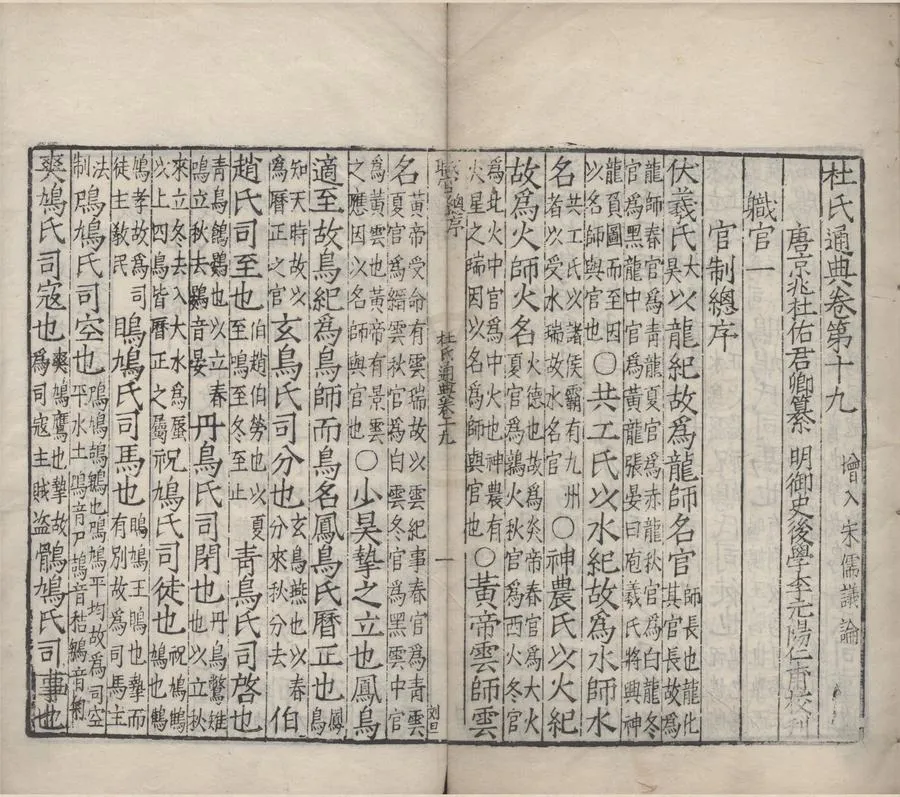 杜氏通典卷第十九 增入宋儒議論
唐京兆杜佑君卿纂 明御史後學李元陽仁甫校刊
職官一
官制總序
伏羲氏大昊以龍紀故爲龍師名官師長也龍化其官長故爲
龍師春官爲青龍夏官爲赤龍秋官爲白龍冬官爲黑龍中官爲黃龍張晏曰庖羲氏將興神
龍負圖而至因以名師與官也○共工氏以水紀故爲水師水
名共工氏以諸侯霸有九州者以受水瑞故水名官○神農氏以火紀
故爲火師火名火德也故爲炎帝春官爲大火夏官爲鶉火秋官爲西火冬官
爲北火中官爲中火也神農有火星之瑞因以名爲師與官也○黃帝雲師雲
職官總序
杜氏通典卷十九
一
刘旦
名黃帝受命有雲瑞故以雲紀事春官爲青雲夏官爲縉雲秋官爲白雲冬官爲黑雲中官
爲黃雲也黃帝有景雲之應因以名師與官○少昊摯之立也鳳鳥
適至故鳥紀爲鳥師而鳥名鳳鳥氏曆正也鳳鳥
知天時故以爲曆正之官玄鳥氏司分也玄鳥燕也以春分來秋分去伯
趙氏司至也伯趙伯勞也以夏至鳴冬至止青鳥氏司啓也
青鳥鶬鷃也以立春鳴立秋去鷃音晏丹鳥氏司閉也丹鳥鷩雉也以立秋
來立冬去入大水爲蜃以上四鳥皆曆正之屬祝鳩氏司徒也祝鳩鵻鳩也鵻
鳩孝故爲司徒主敎民鴡鳩氏司馬也鴡鳩王鴡也摯而有別故爲司馬主
法制鳲鳩氏司空也鳲鳩鴶鵴也鳲鳩平均故爲司空平水土鳲音尸鴶音秸鵴音菊
爽鳩氏司寇也爽鳩鷹也摯故爲司寇主賊盗鶻鳩氏司事也